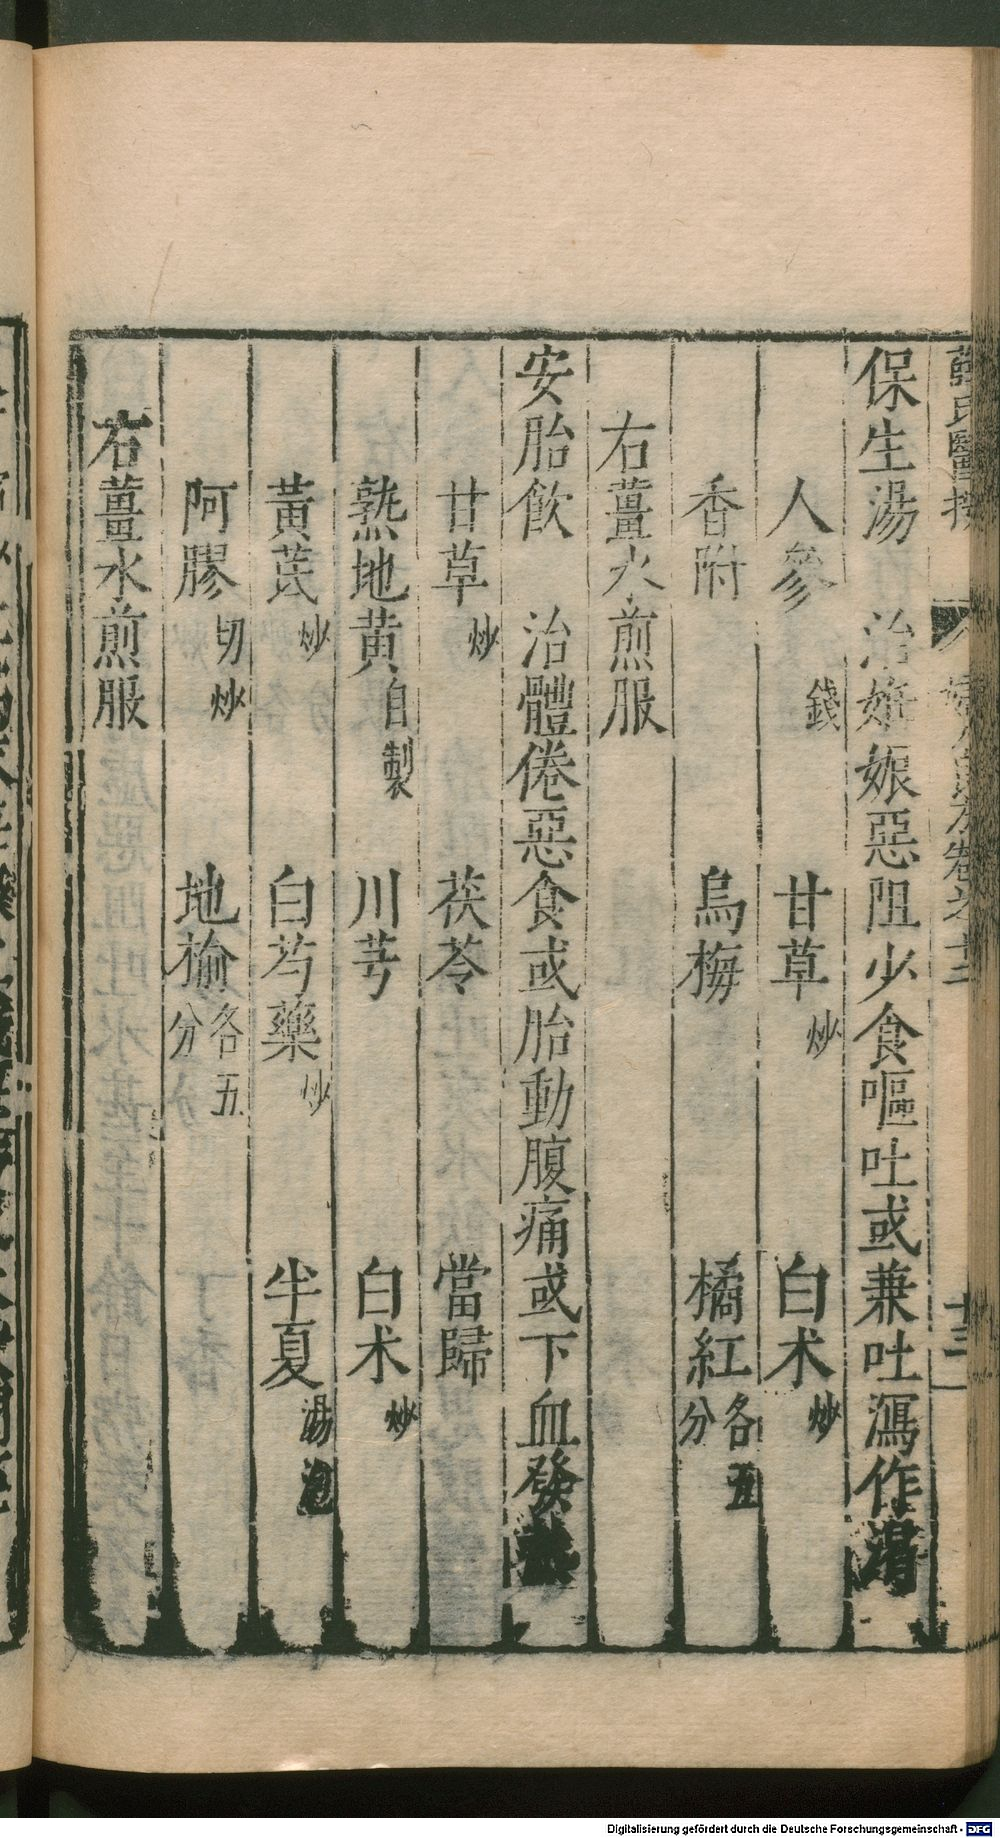 保生湯 治妊娠惡阻少食嘔吐或兼吐瀉作渴
人參錢 甘草炒 白术炒
香附 烏梅 橘紅各五分
右薑水煎服
安胎飲 治體倦惡食或胎動腹痛或下血發熱
甘草炒 茯苓 當歸
熟地黄自製 川芎 白术炒
黃芪炒 白芍藥炒 半夏湯泡
阿膠切炒 地榆各五分
右薑水煎服
Digitalisierung gefördert durch die Deutsche Forschungsgemeinschaft - DFG